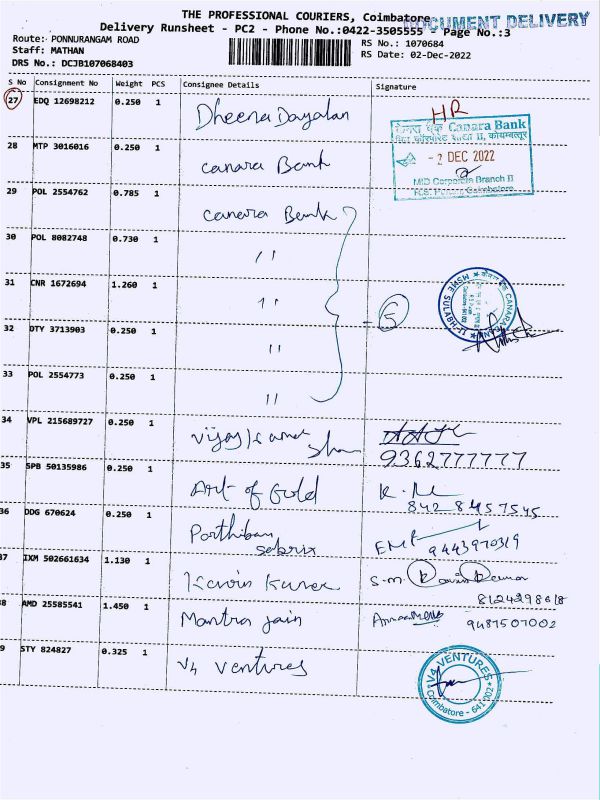 THE PROFESSIONAL COURIERS, Coimbatore
DOCUMENT DELIVERY
Delivery Runsheet - PC2 - Phone No.:0422-3505555 - Page No.:3
Route: PONNURANGAM ROAD
RS No.: 1070684
Staff: MATHAN
RS Date: 02-Dec-2022
DRS No.: DCJB107068403
S No Consignment No Weight PCS Consignee Details Signature
27 EDQ 12698212 0.250 1 Dheena Dayalan
HR
केनरा बैंक Canara Bank
- 2 DEC 2022
MID Corporate Branch II
28 MTP 3016016 0.250 1 Canara Bank
29 POL 2554762 0.785 1 Canara Bank
30 POL 8082748 0.730 1 "
31 CNR 1672694 1.260 1 "
5
32 OTY 3713903 0.250 1 "
33 POL 2554773 0.250 1 "
34 VPL 215689727 0.250 1
9362777777
35 SPB 50135986 0.250 1 Art of Gold
842 8457545
36 DDG 670624 0.250 1 Parthiban
9443970319
37 IXM 502661634 1.130 1
S.M.
8124298618
38 AMD 25585541 1.450 1 Mantra Jain
9487507002
39 STY 824827 0.325 1 V4 Ventures
V4 VENTURES
Coimbatore - 641 002